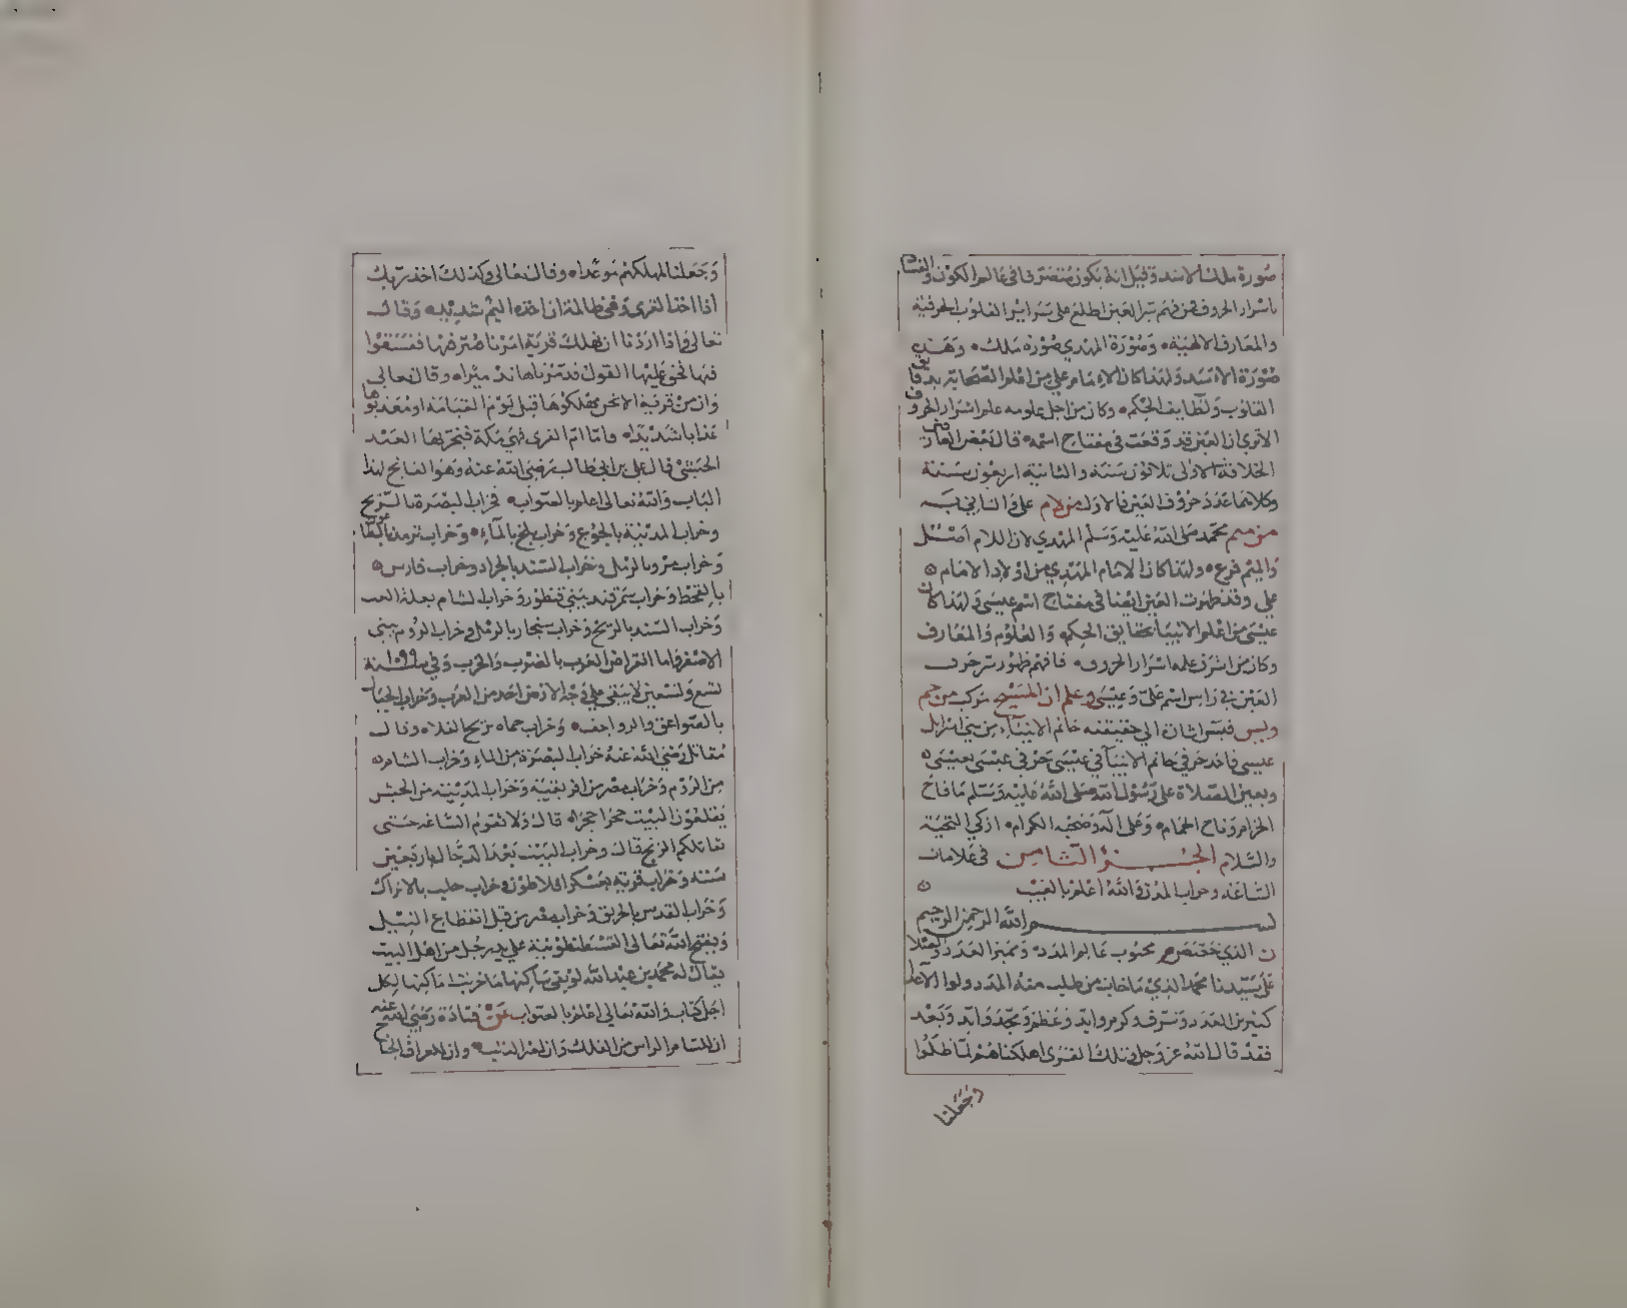 صورة ملك الاسد وقيل انه يكون متصرفا في عالم الكون والفساد
باسرار الحروف فمن فهم سر العين اطلع على سراير القلوب الحرفية
والمعارف الالهية وصورة المهدي صورة ملك وهذي
صورة الاسد ولهذا كان الامام علي من اعلم الصحابة بدقايق
القلوب ولطايف الحكم وكان من اجل علومه علم اسرار الحروف
الا ترى ان العين قد وقعت في مفتاح اسمه قال بعض العارفين
الخلافة الاولى ثلاثون سنة والثانية اربعون سنة
وكلاهما عدد حروف العين فالاول من لام علي والثاني
من ميم محمد صلى الله عليه وسلم المهدي لان اللام اصل
والميم فرع ولهذا كان الامام المهدي من اولاد الامام
علي وقد ظهرت العين ايضا في مفتاح اسم عيسى ولهذا كان
عيسى من اعلم الانبيا بحقايق الحكم والعلوم والمعارف
وكان من اشرف علمه اسرار الحروف فافهم ظهور سر حرف
العين في راس اسم علي وعيسى وعلم ان المسيح مركب من جيم
عيسى فاخذ حرف خاتم الانبيا في عيسى حرف عيسى بعيسى
وبعين الصلاة على رسول الله صلى الله عليه وسلم ما فاح
الخزام وناح الحمام وعلى اله وصحبه الكرام ازكى التحية
والسلام الجزؤ الثامن في علامات
الساعة وخراب المدن والله اعلم بالغيب
بسم الله الرحمن الرحيم
على سيدنا محمد الذي ما خاب من طلب منه المدد
فقد قال الله عز وجل وتلك القرى اهلكناهم لما ظلموا
وجعلنا
وجعلنا لمهلكهم موعدا وقال تعالى وكذلك اخذ ربك
اذا اخذ القرى وهي ظالمة ان اخذه اليم شديد وقال
تعالى واذا اردنا ان نهلك قرية امرنا مترفيها ففسقوا
فيها فحق عليها القول فدمرناها تدميرا وقال تعالى
وان من قرية الا نحن مهلكوها قبل يوم القيامة او معذبوها
عذابا شديدا واما ام القرى فهي مكة فيخربها العبد
الحبشي قال علي بن ابي طالب رضي الله عنه وهو الفاتح لهذا
الباب والله تعالى اعلم بالصواب فخراب البصرة بالريح
وخراب المدينة بالجوع وخراب بلخ بالماء وخراب ترمد بالطاعون
وخراب مرو بالرمل وخراب السند بالجراد وخراب فارس
بالقحط وخراب سمرقند ببني قنطور وخراب الشام بعلة
وخراب السند بالريح وخراب سنجار بالرمل وخراب الروم ببني
الاصفر واما انقراض العرب بالضرب والحرب وفي سنة ١٩٩
تسع وتسعين لا يبقى على وجه الارض احد من العرب وخراب الجبال
بالصواعق والرواجف وخراب حماه بريح الفلاه وقال
مقاتل رضي الله عنه خراب البصرة من الماء وخراب الشام
من الروم وخراب مصر من افريقية وخراب المدينة من الحبش
يقلعون البيت حجرا حجرا قال ولا تقوم الساعة حتى
تقاتلكم الزنج قال وخراب البيت بعد الدجال باربعين
سنة وخراب قرية بعسكر افلاطون وخراب حلب بالاتراك
وخراب القدس بالحريق وخراب مصر من قبل انقطاع النيل
ويفتح الله تعالى القسطنطونية على يد رجل من اهل البيت
يقال له محمد بن عبد الله لو بقي ساكنها ما خربت اماكنها لكل
اجل كتاب والله تعالى اعلم بالصواب عن قتادة رضي الله عنه